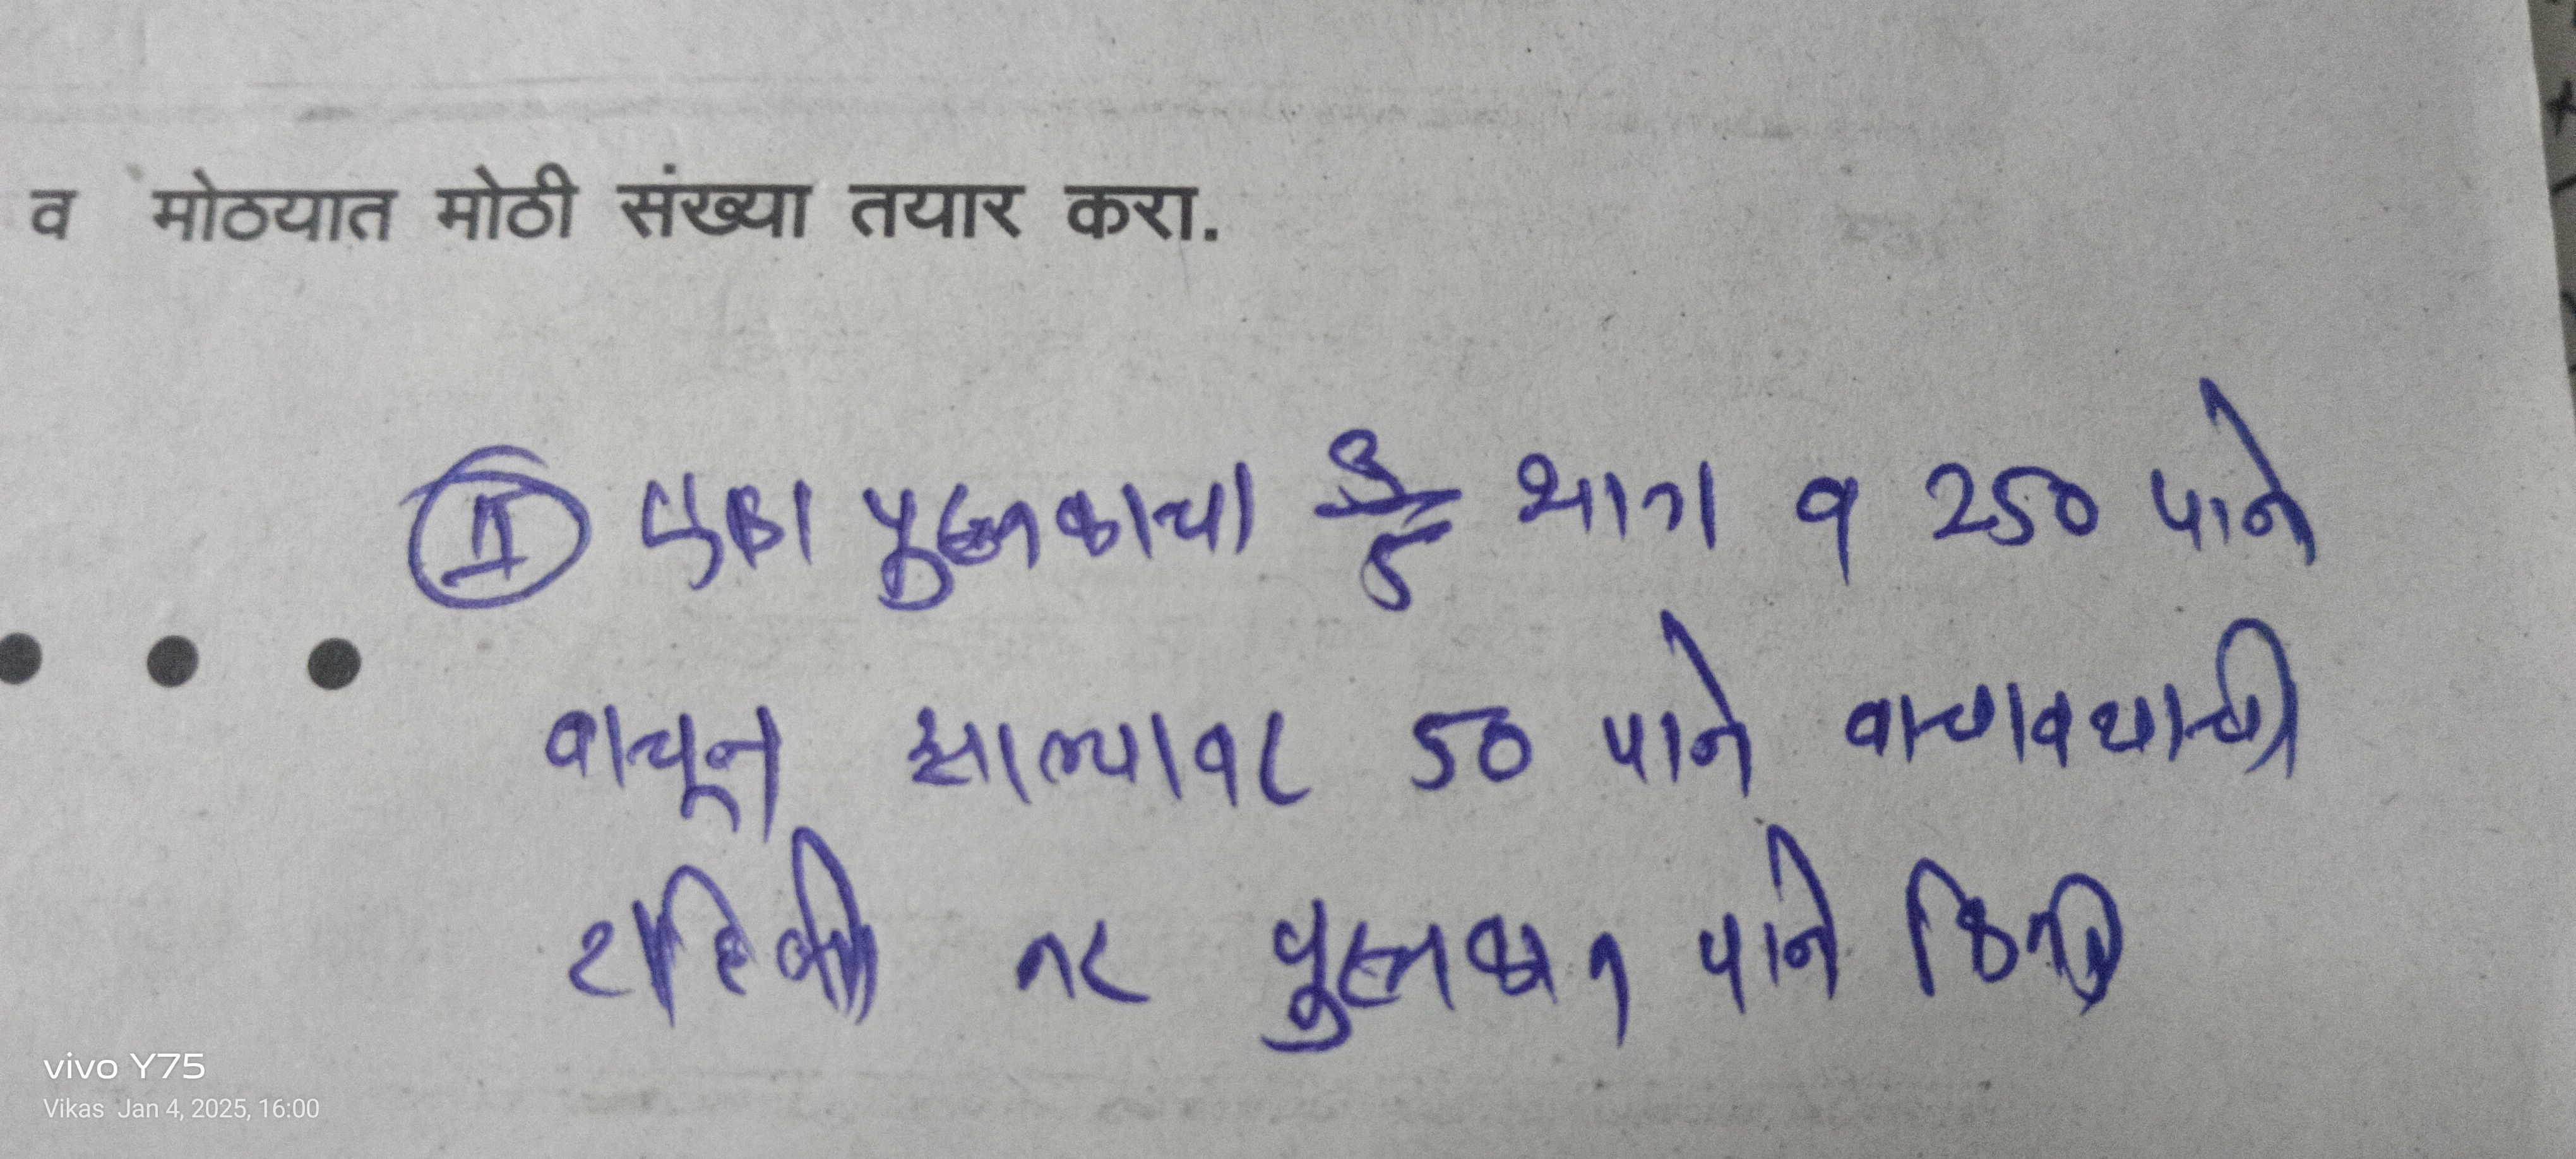 व मोठयात मोठी संख्या तयार करा.
II एका पुस्तकाचा 3/5 भाग व 250 पाने
वाचून झाल्यावर 50 पाने वाचावयाची
राहिली तर पुस्तकात पाने किती
vivo Y75
Vikas Jan 4, 2025, 16:00